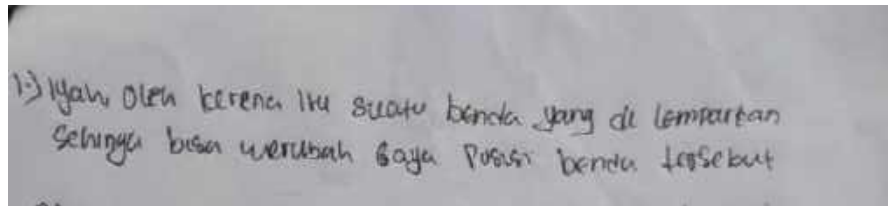 1.) Iyah, oleh kerena itu suatu benda yang di lemparkan
Sehinga bisa merubah gaya Posisi benda tersebut